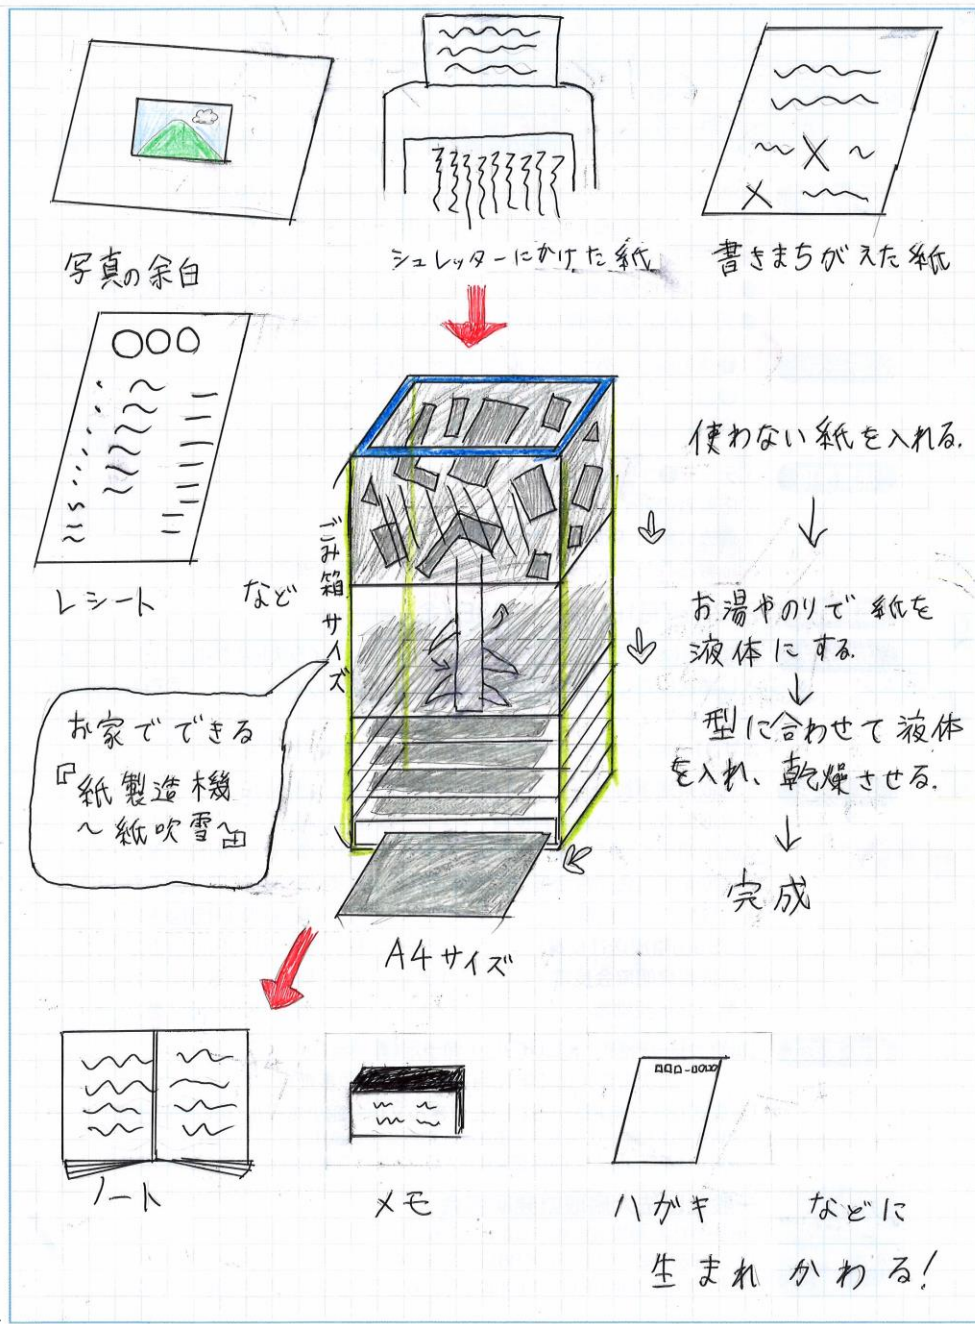 写真の余白
シュレッターにかけた紙
書きまちがえた紙
レシート
など
ごみ箱サイズ
使わない紙を入れる.
↓
お湯やのりで紙を
液体にする.
↓
型に合わせて液体
を入れ、乾燥させる.
↓
完成
お家でできる
『紙製造機
~紙吹雪~』
A4サイズ
ノート
メモ
ハガキ
などに
生まれかわる!